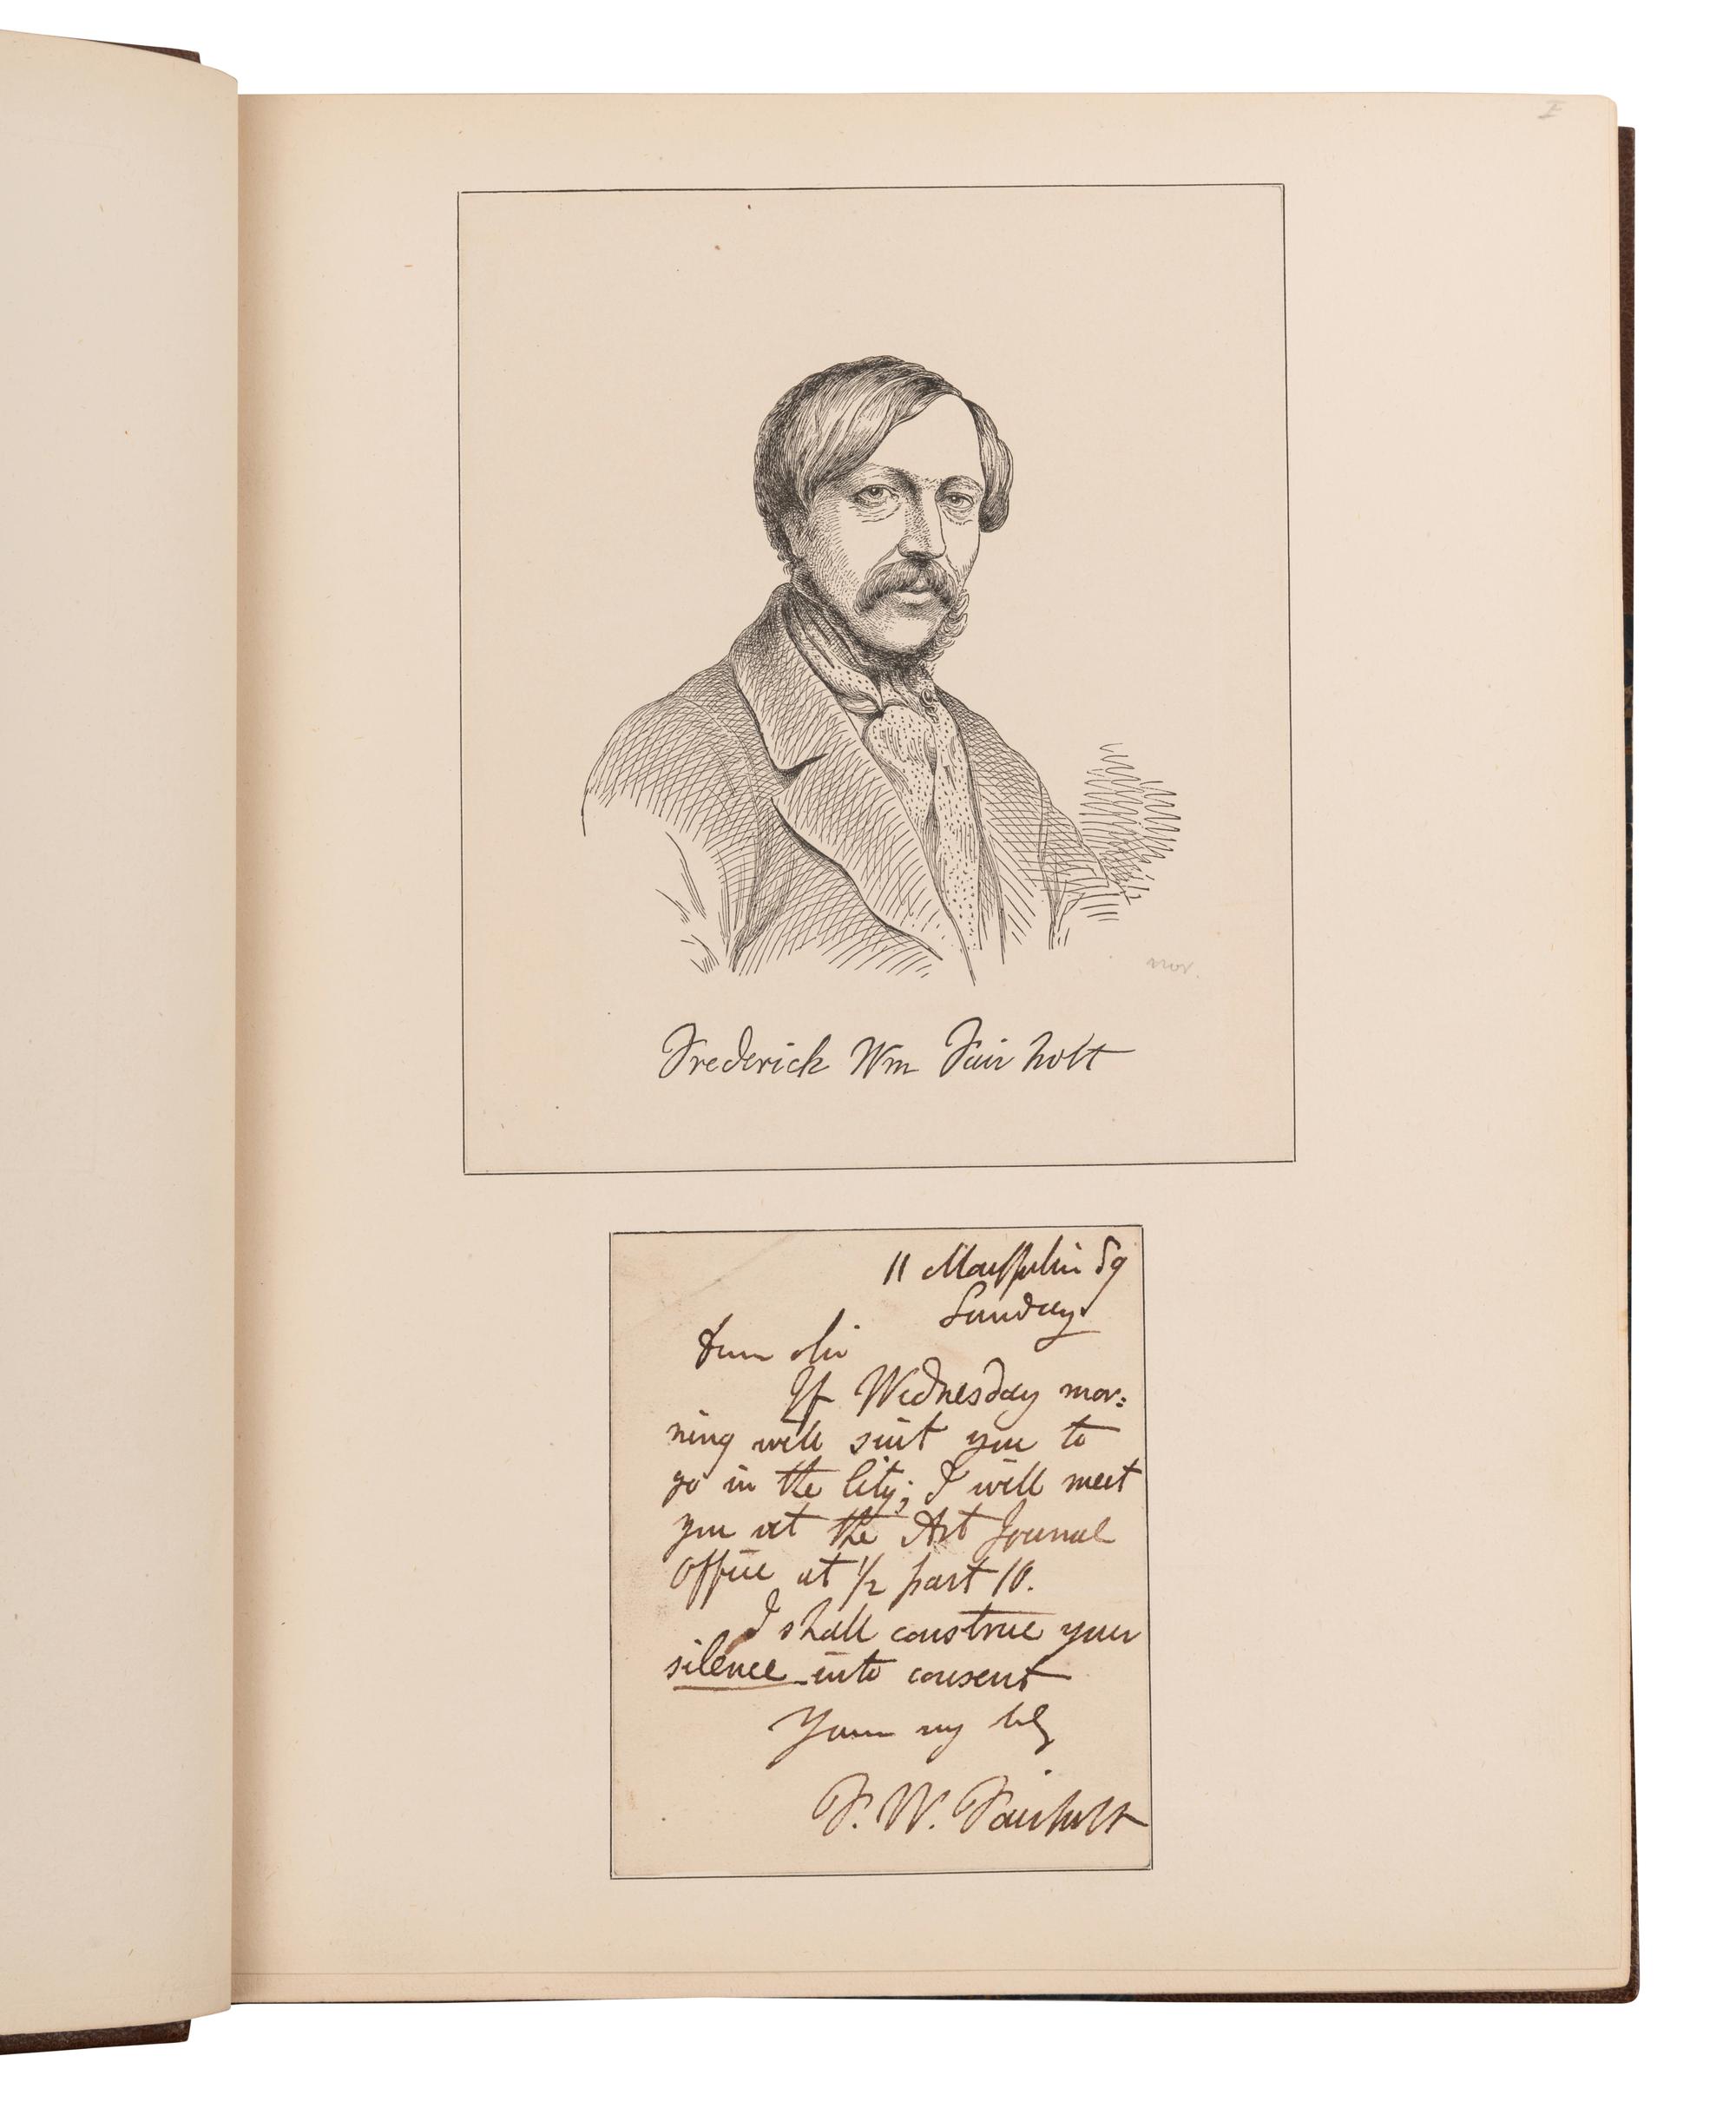 I
nov.
Frederick Wm Fairholt
11 Montpelier Sq
Sunday
Dear Sir
If Wednesday mor:
ning will suit you to
go in the City; I will meet
you at the Art Journal
Office at 1/2 past 10.
I shall construe your
silence into consent
Yours
F. W. Fairholt